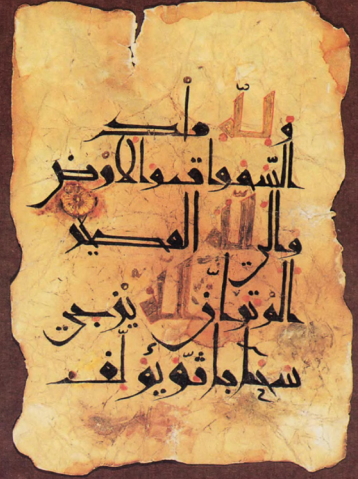 ولله ملك
السموات والارض
والى الله المصير
الم تر أنّ الله يزجي
سحابا ثمّ يؤلّف